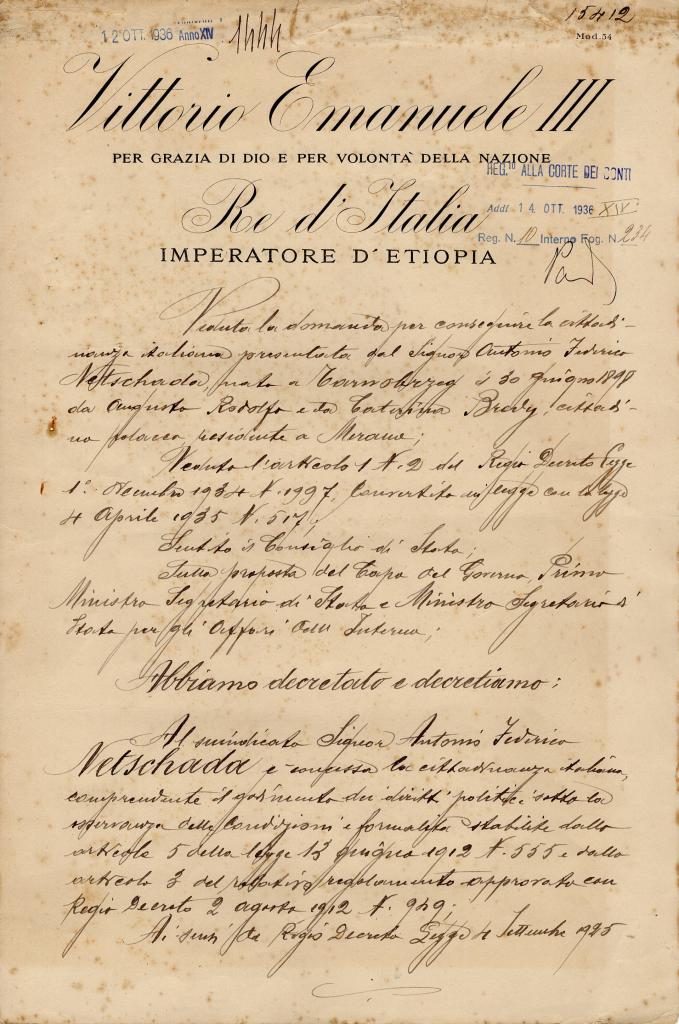 15412
12 OTT. 1936 Anno XIV 1444
Mod. 54
Vittorio Emanuele III
PER GRAZIA DI DIO E PER VOLONTÀ DELLA NAZIONE
REG.to ALLA CORTE DEI CONTI
Re d'Italia
Addì 14 OTT. 1936 XIV
Reg. N. 10 Interno Fog. N. 234
IMPERATORE D'ETIOPIA
Veduta la domanda per conseguire la cittadi-
nanza italiana presentata dal Signor Antonio Federico
Netschada, nato a Tarnobrzeg il 30 giugno 1898
da Augusto Rodolfo e da Caterina Brody, cittadi-
no polacco, residente a Merano;
Veduto l'articolo 1 N. 2 del Regio Decreto Legge
1° Dicembre 1934 N. 1997, convertito in legge con la legge
4 Aprile 1935 N. 517;
Sentito il Consiglio di Stato;
Sulla proposta del Capo del Governo, Primo
Ministro Segretario di Stato e Ministro Segretario di
Stato per gli Affari dell'Interno;
Abbiamo decretato e decretiamo:
Al suindicato Signor Antonio Federico
Netschada è concessa la cittadinanza italiana,
comprendente il godimento dei diritti politici sotto la
osservanza delle condizioni e formalità stabilite dallo
articolo 5 della legge 13 giugno 1912 N. 555 e dallo
articolo 3 del relativo regolamento approvato con
Regio Decreto 2 agosto 1912 N. 949;
Ai sensi del Regio Decreto Legge 4 Settembre 1925